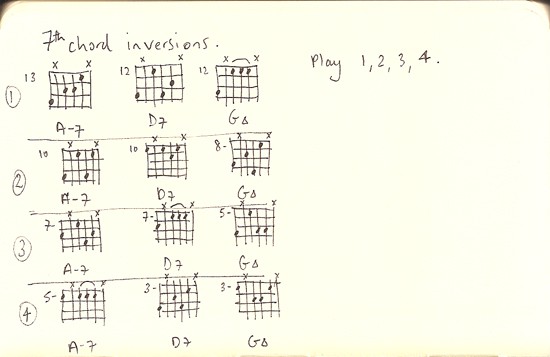 7th chord inversions.
Play 1, 2, 3, 4.
x x x x x x
13 12 12
1
A-7 D7 GΔ
x x x x x x
10 10 8-
2
A-7 D7 GΔ
x x x x x x
7- 7- 5-
3
A-7 D7 GΔ
x x x x x x
5- 3- 3-
4
A-7 D7 GΔ